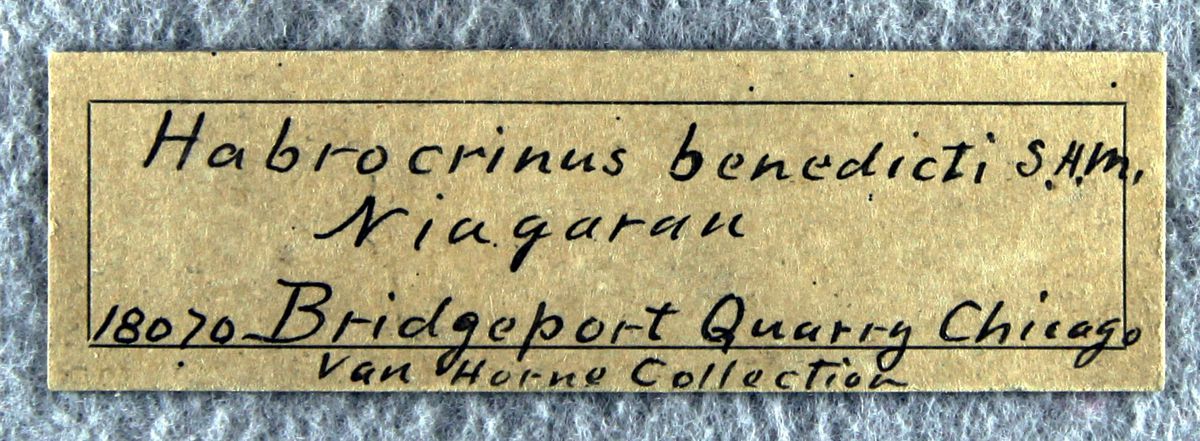 Habrocrinus benedicti S.A.M.
Niagaran
18070 Bridgeport Quarry Chicago
Van Horne Collection